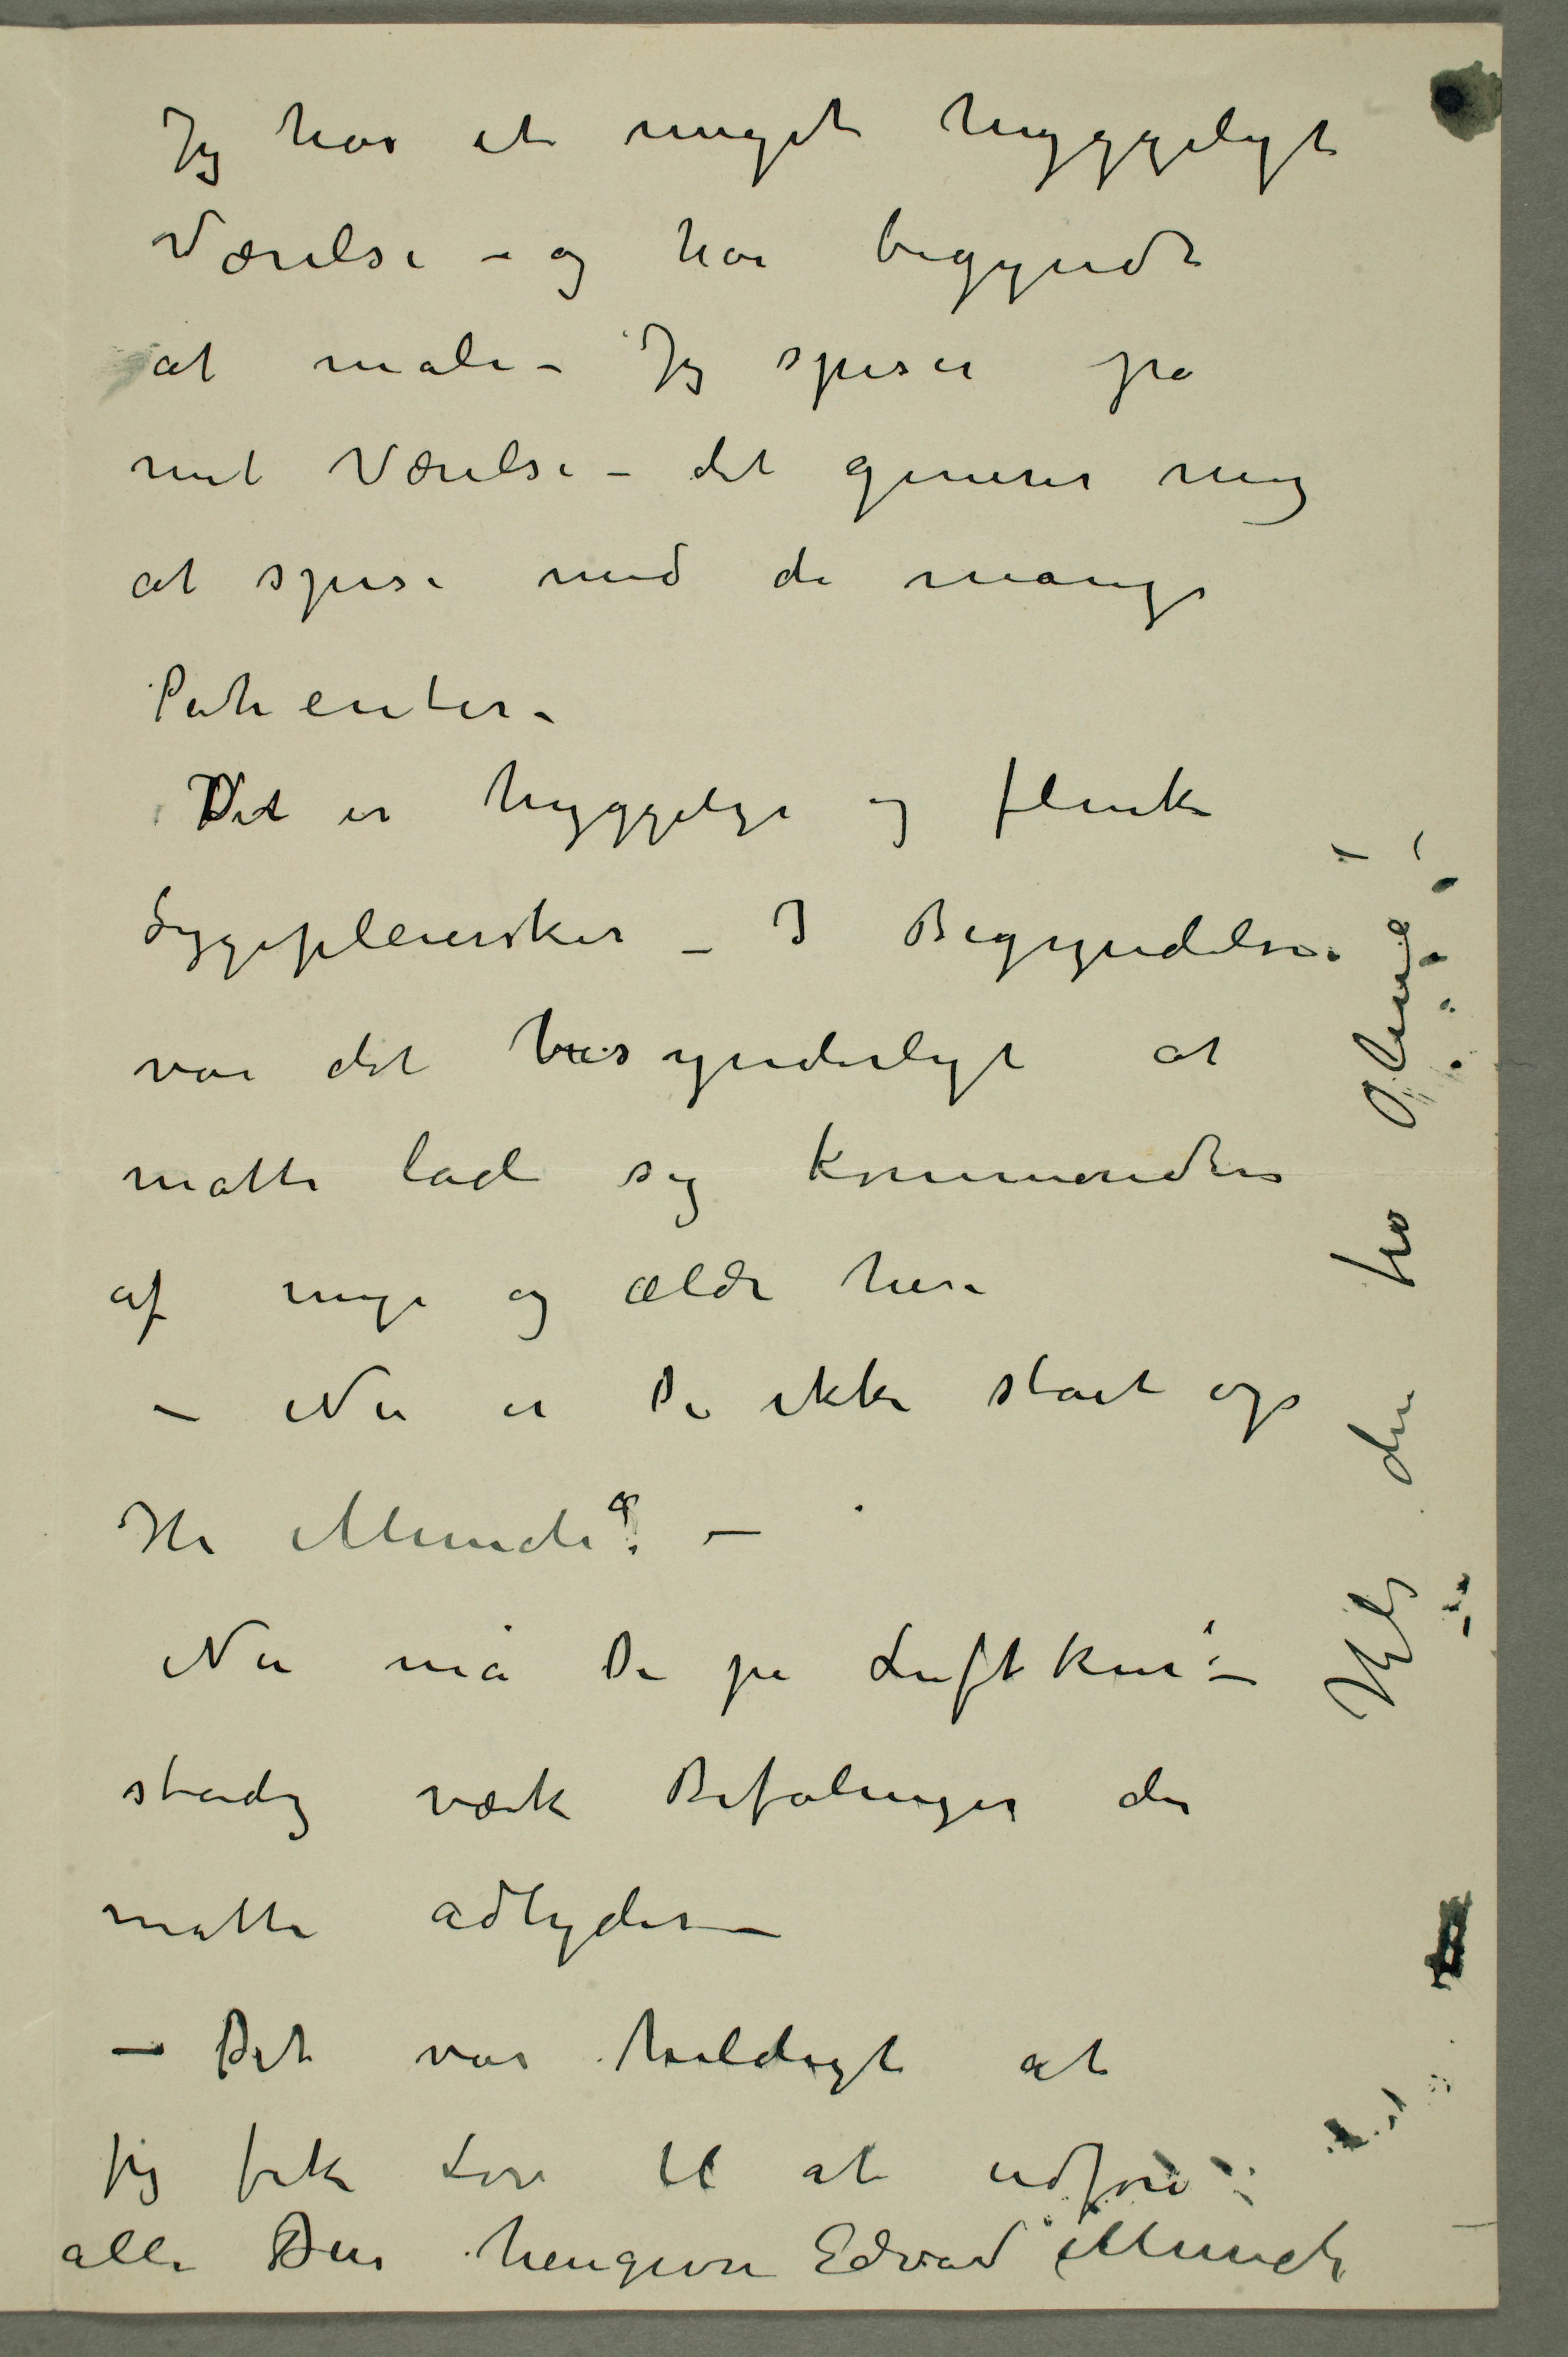 Jeg har et meget hyggeligt
Værelse – og har begyndt
at male – Jeg spiser på
mit Værelse – det generer mig
at spise med de mange
Patienter –
Det er hyggelige og flinke
Sygepleiersker – I Begyndelsen
var det besynderligt at
måtte lade sig kommandere
af unge og ældre her
– Nu er De ikke stået op
Hr Munch? –
Nu må De på Luftkur! –
stadig værk Befalinger der
måtte adlydes –
– Det var heldigt at
jeg fik Lov til at udføre
alle Din hengivne Edvard Munch
Hils din